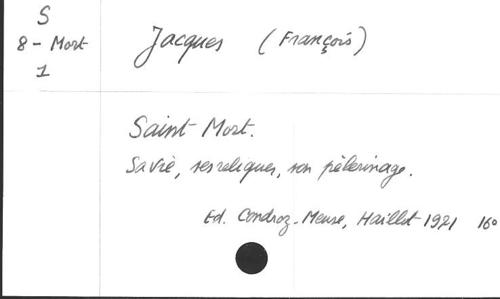 S
8 - Mort
1
Jacques (François)
Saint Mort.
Sa vie, ses reliques, son pèlerinage.
Ed. Condroz-Meuse, Haillot 1921 16°